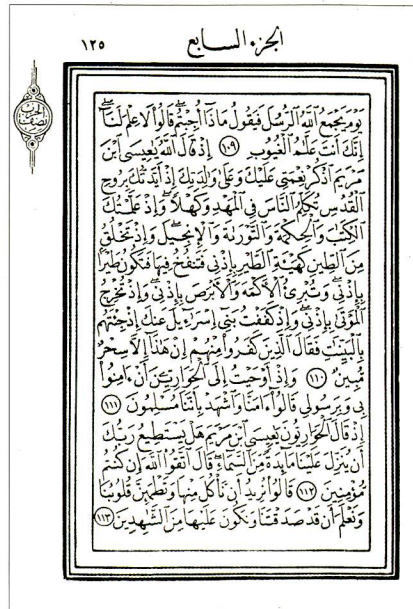 الجزء السابع
١٢٥
نصف الحزب
يَوْمَ يَجْمَعُ ٱللَّهُ ٱلرُّسُلَ فَيَقُولُ مَاذَآ أُجِبْتُمْ قَالُوا۟ لَا عِلْمَ لَنَآ
إِنَّكَ أَنتَ عَلَّٰمُ ٱلْغُيُوبِ ١٠٩ إِذْ قَالَ ٱللَّهُ يَٰعِيسَى ٱبْنَ
مَرْيَمَ ٱذْكُرْ نِعْمَتِى عَلَيْكَ وَعَلَىٰ وَٰلِدَتِكَ إِذْ أَيَّدتُّكَ بِرُوحِ
ٱلْقُدُسِ تُكَلِّمُ ٱلنَّاسَ فِى ٱلْمَهْدِ وَكَهْلًا وَإِذْ عَلَّمْتُكَ
ٱلْكِتَٰبَ وَٱلْحِكْمَةَ وَٱلتَّوْرَىٰةَ وَٱلْإِنجِيلَ وَإِذْ تَخْلُقُ
مِنَ ٱلطِّينِ كَهَيْـَٔةِ ٱلطَّيْرِ بِإِذْنِى فَتَنفُخُ فِيهَا فَتَكُونُ طَيْرًۢا
بِإِذْنِى وَتُبْرِئُ ٱلْأَكْمَهَ وَٱلْأَبْرَصَ بِإِذْنِى وَإِذْ تُخْرِجُ
ٱلْمَوْتَىٰ بِإِذْنِى وَإِذْ كَفَفْتُ بَنِىٓ إِسْرَٰٓءِيلَ عَنكَ إِذْ جِئْتَهُم
بِٱلْبَيِّنَٰتِ فَقَالَ ٱلَّذِينَ كَفَرُوا۟ مِنْهُمْ إِنْ هَٰذَآ إِلَّا سِحْرٌ
مُّبِينٌ ١١٠ وَإِذْ أَوْحَيْتُ إِلَى ٱلْحَوَارِيِّۦنَ أَنْ ءَامِنُوا۟
بِى وَبِرَسُولِى قَالُوٓا۟ ءَامَنَّا وَٱشْهَدْ بِأَنَّنَا مُسْلِمُونَ ١١١
إِذْ قَالَ ٱلْحَوَارِيُّونَ يَٰعِيسَى ٱبْنَ مَرْيَمَ هَلْ يَسْتَطِيعُ رَبُّكَ
أَن يُنَزِّلَ عَلَيْنَا مَآئِدَةً مِّنَ ٱلسَّمَآءِ قَالَ ٱتَّقُوا۟ ٱللَّهَ إِن كُنتُم
مُّؤْمِنِينَ ١١٢ قَالُوا۟ نُرِيدُ أَن نَّأْكُلَ مِنْهَا وَتَطْمَئِنَّ قُلُوبُنَا
وَنَعْلَمَ أَن قَدْ صَدَقْتَنَا وَنَكُونَ عَلَيْهَا مِنَ ٱلشَّٰهِدِينَ ١١٣